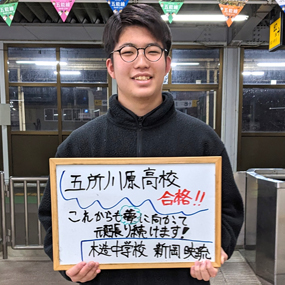 五所川原高校
合格!!
これからも夢に向かって
頑張り続けます!
木造中学校 新岡 映琉